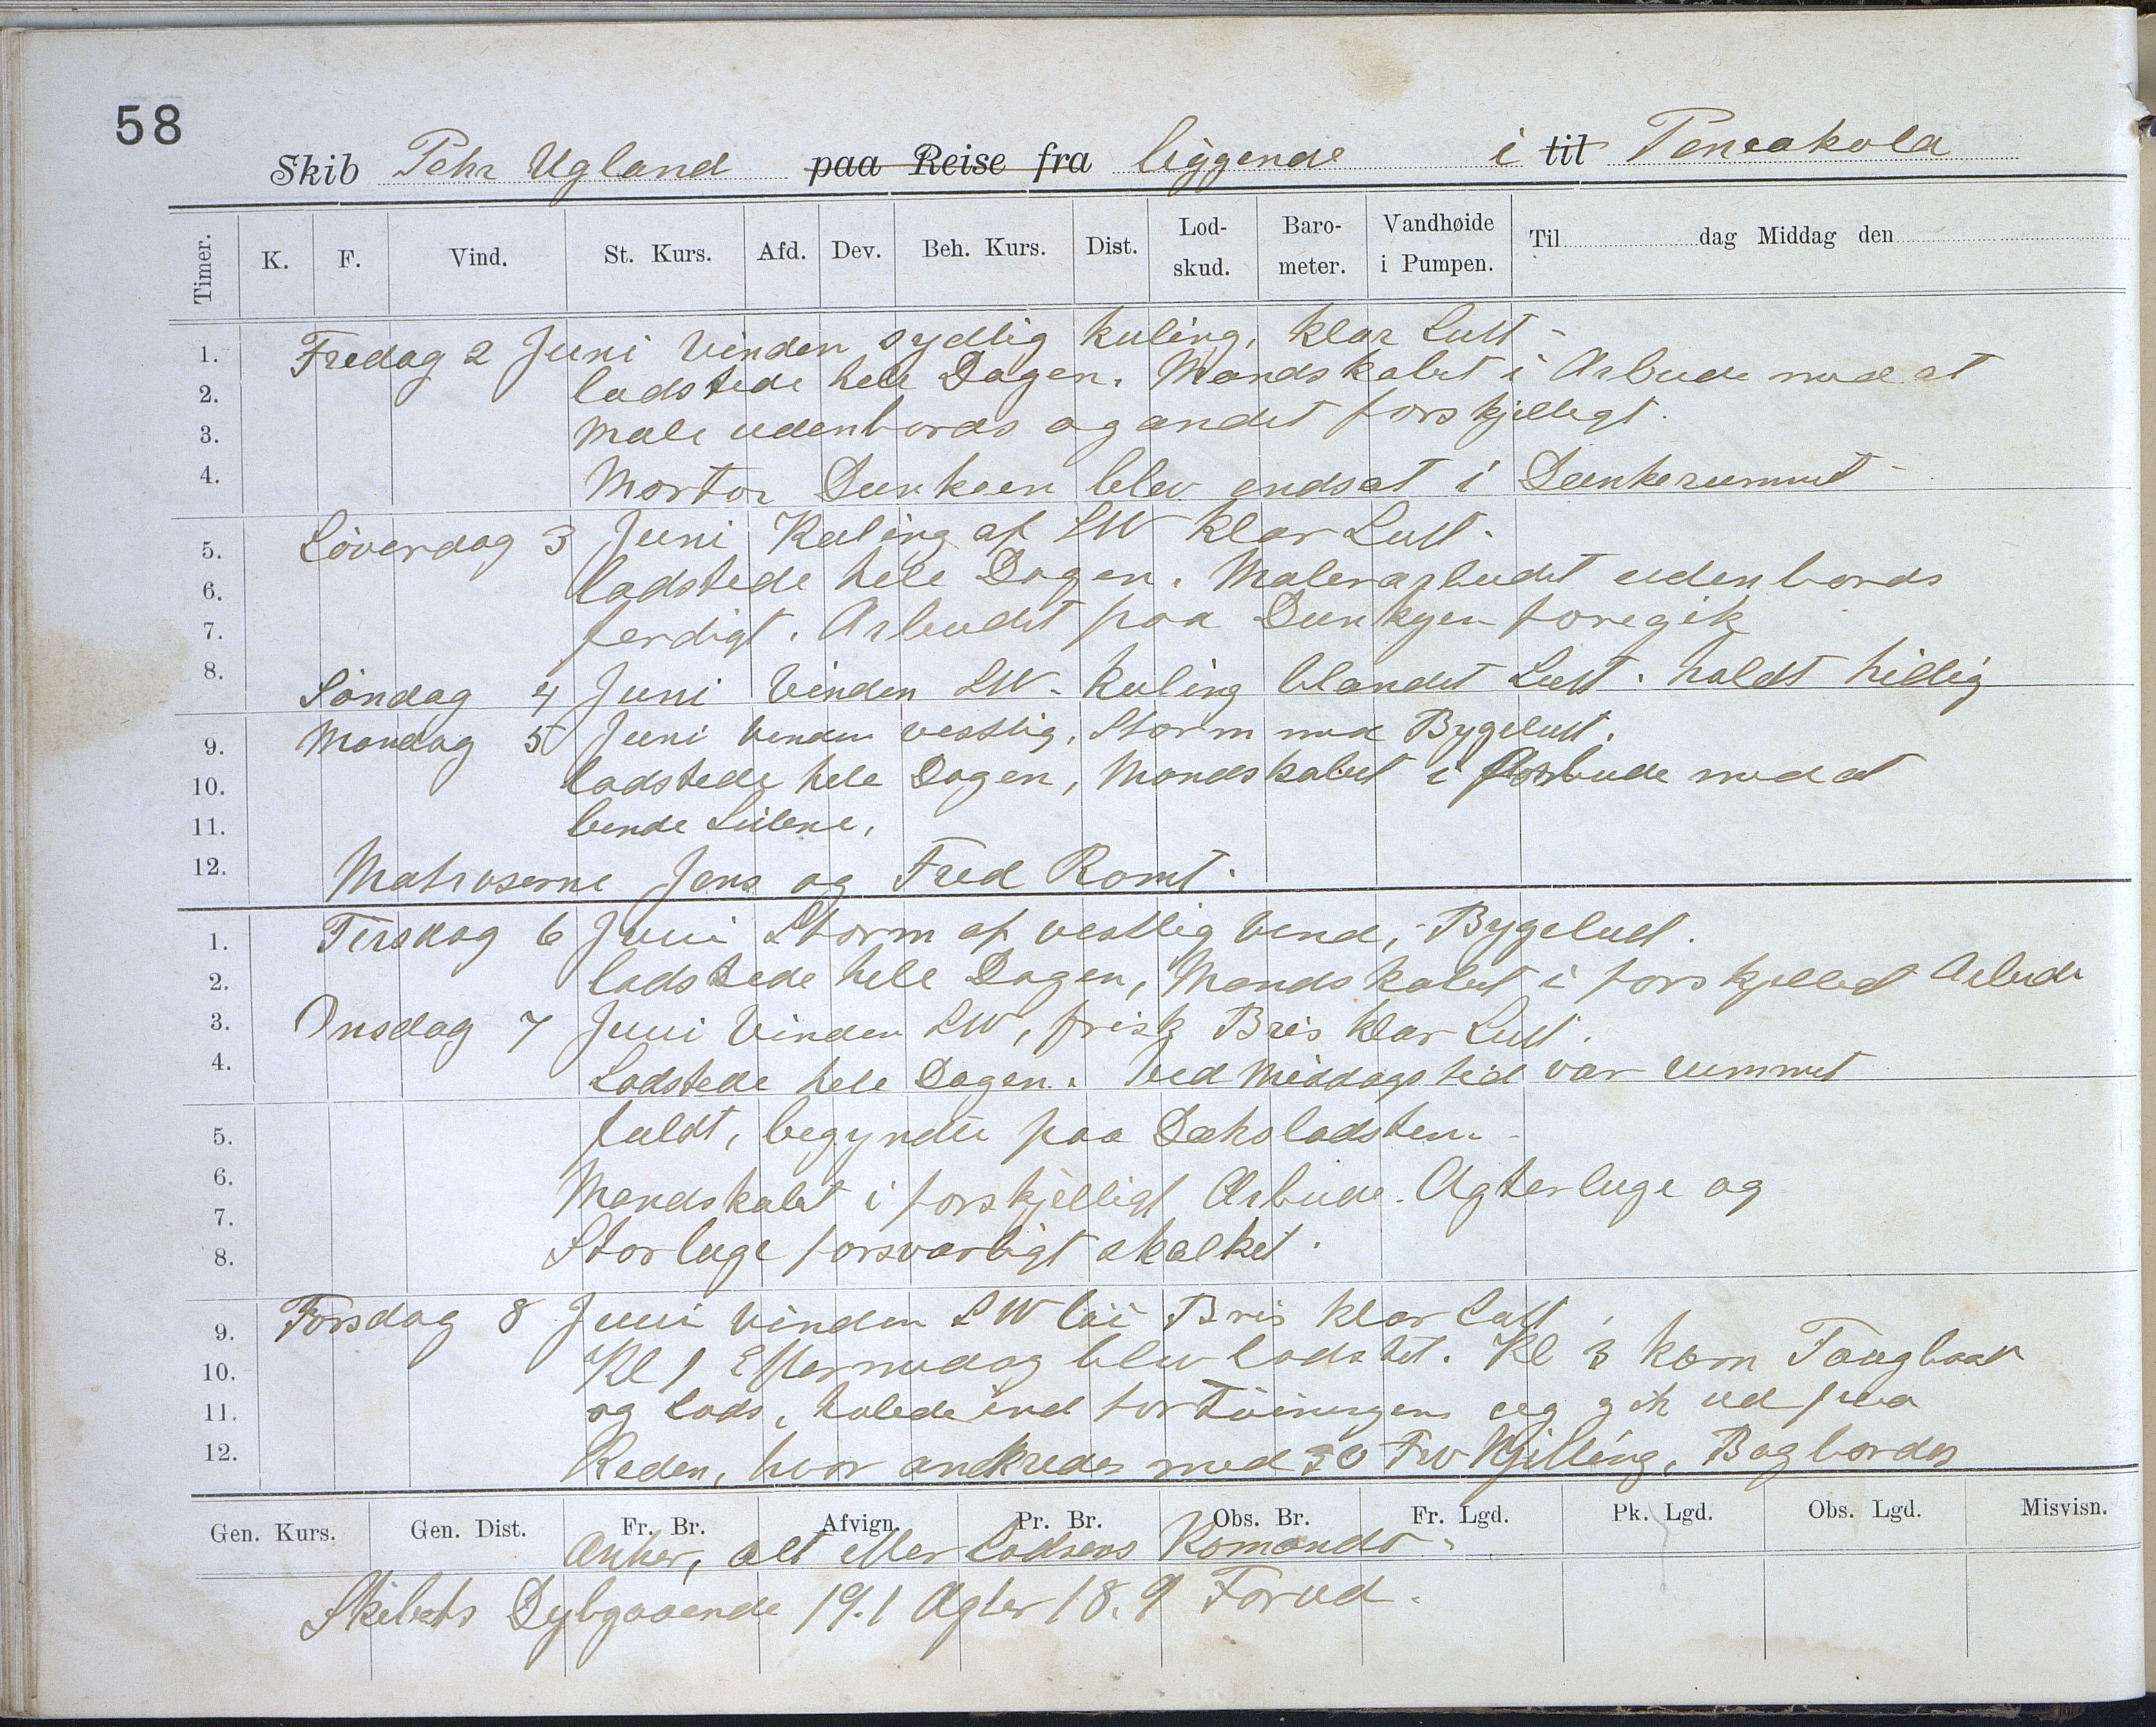 58
Skib Pehr Ugland paa Reise fra liggende i til Pensakola
Timer. K. F. Vind. St. Kurs. Afd. Dev. Beh. Kurs. Dist. Lod-skud. Baro-meter. Vandhøide i Pumpen. Til dag Middag den
1. Fredag 2 Juni Vinden sydlig kuling, klar Luft -
2. ladstede hele Dagen. Mandskabet i Arbeide med at
3. Male udenbords og andet forskjelligt.
4. Mortor Dunkeen blev indsat i Dunkerummet -
5. Löverdag 3 Juni Kuling af SW klar Luft.
6. ladstede hele Dagen. Malerarbeidet udenbords
7. ferdigt. Arbeidet paa Dunkyen foregik
8. Söndag 4 Juni Vinden SW. kuling blandet Luft. holdt hellig
9. Mandag 5 Juni Vinden vestlig, Storm med Bygeluft.
10. ladstede hele Dagen, Mandskabet i Arbeide med at
11. bende Seilene,
12. Matroserne Jens og Fred Romt.
1. Tirsdag 6 Juni Storm af vestlig Vend, Bygeluft.
2. ladstede hele Dagen, Mandskabet i forskjelled Arbeide
3. Onsdag 7 Juni Vinden SW, frisk Bris klar Luft.
4. Ladstede hele Dagen. Ved Middagstid var rummet
5. fuldt, begyndte paa Dæksladsten.
6. Mandskabet i forskjelligt Arbeide. Agterluge og
7. Storluge forsvarligt skalket.
8.
9. Torsdag 8 Juni Vinden SW löi Bris klar Luft,
10. Kl 1 Eftermidag blev ladstet. Kl 3 kom Taugbaat
11. og Lods, halede ind fortöiningen og gik ud paa
12. Reden, hvor ankredes med 50 Fv Kjitting, Bagbordes
Gen. Kurs. Gen. Dist. Fr. Br. Afvign. Pr. Br. Obs. Br. Fr. Lgd. Pk. Lgd. Obs. Lgd. Misvisn.
Anker, alt efter Lodsens Komando.
Skibets Dybgaaende 19.1 Agter 18.9 Forud.